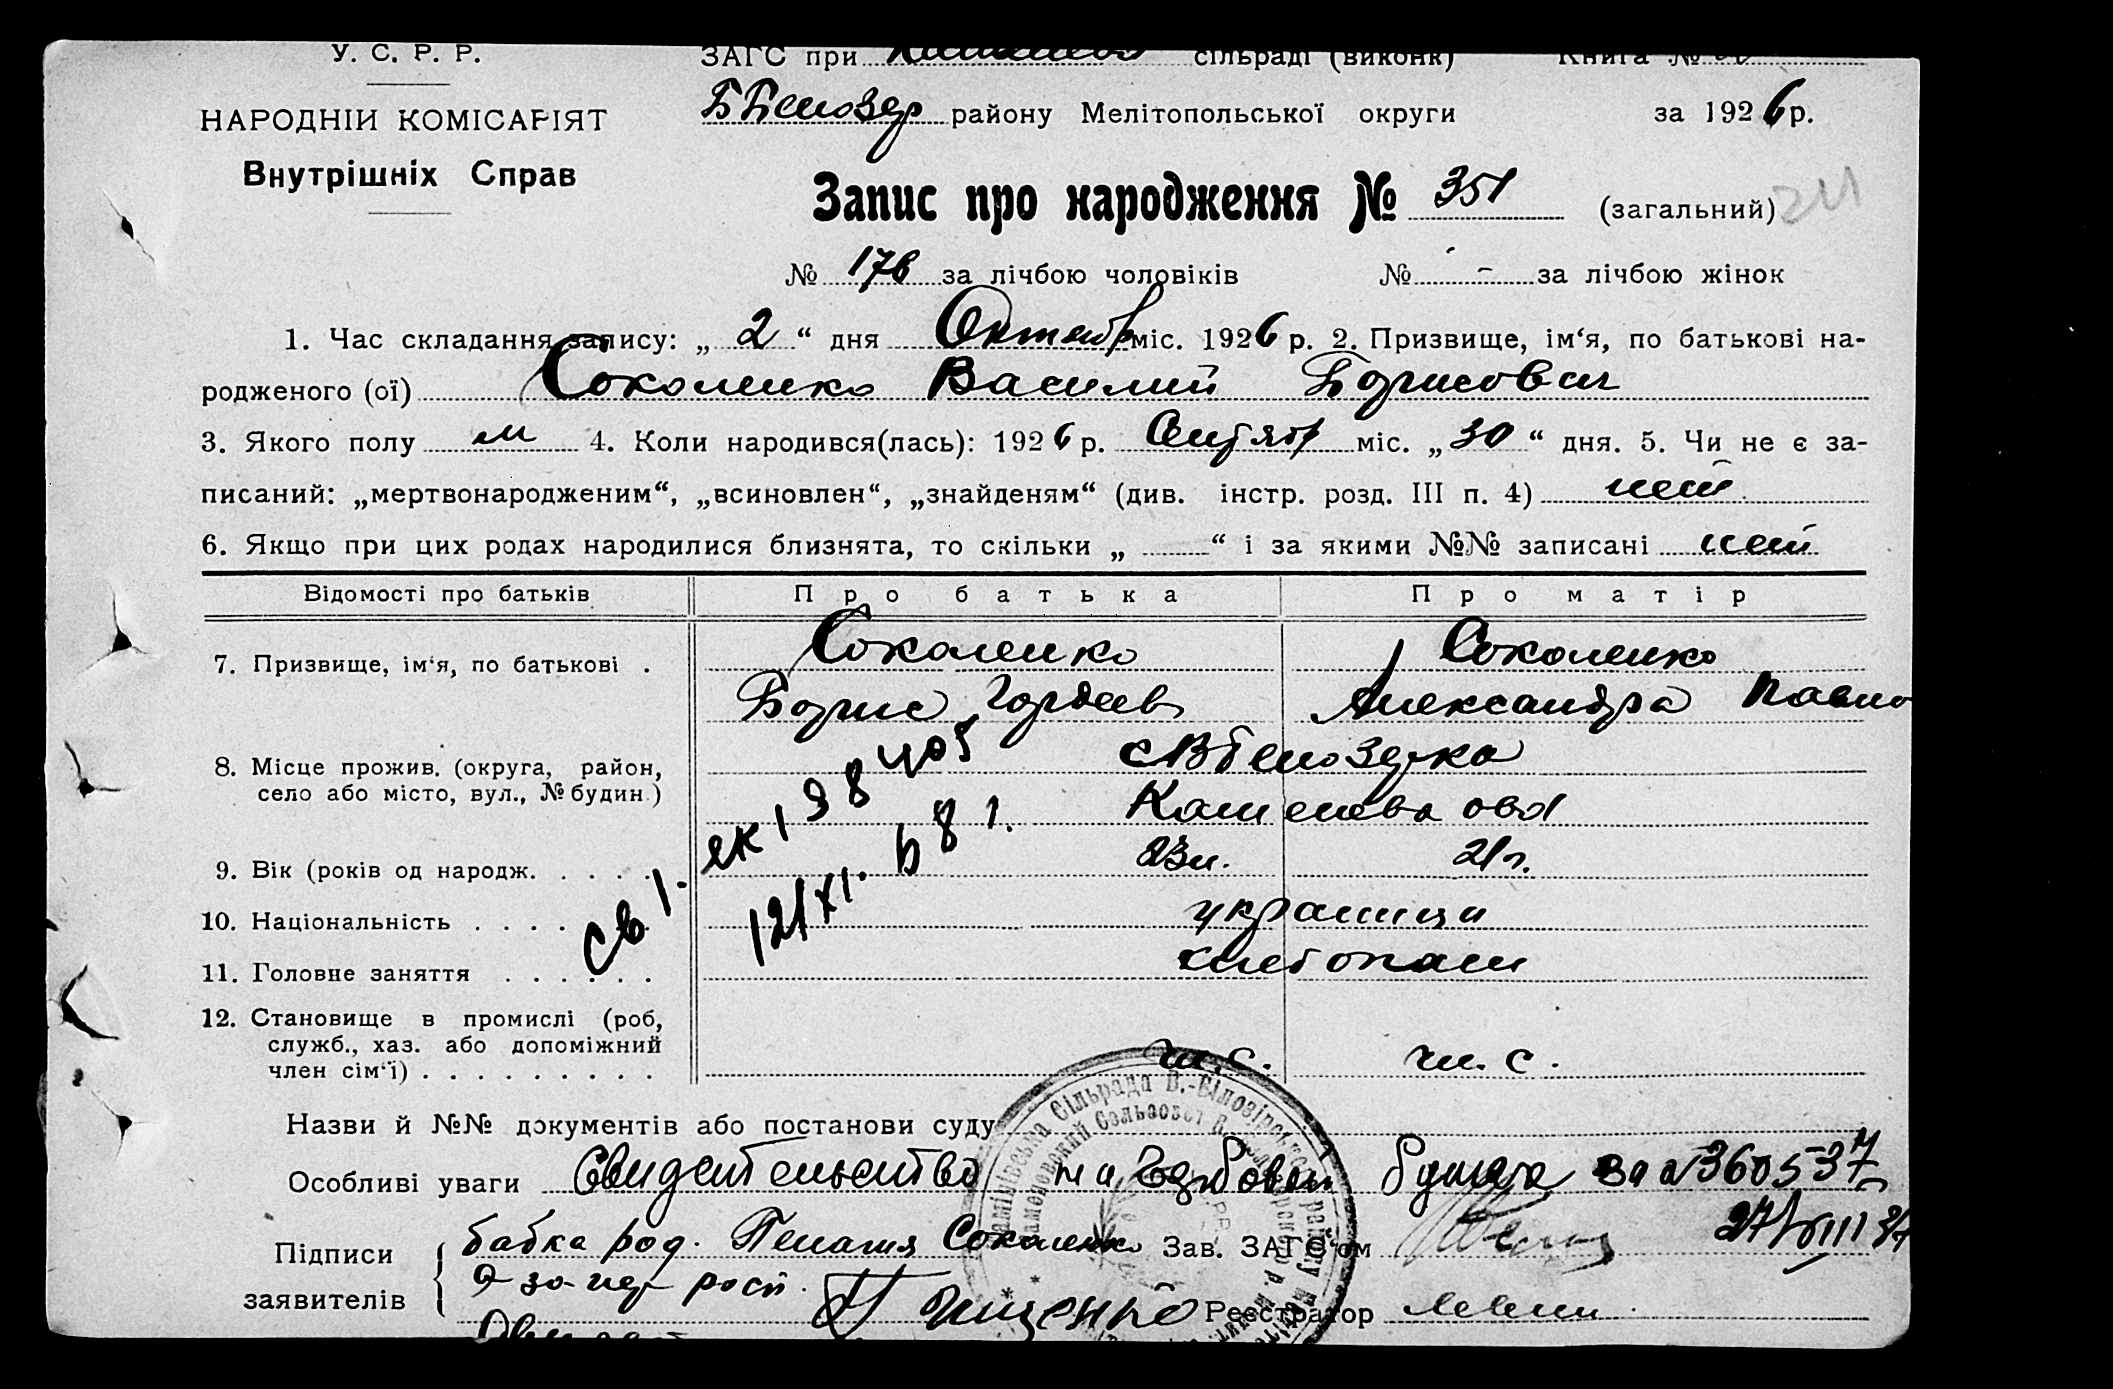 У. С. Р. Р.
ЗАГС при сільраді (виконк) Книга №
НАРОДНІЙ КОМІСАРІЯТ
Внутрішніх Справ
ББелозер району Мелітопольської округи за 1926 р.
Запис про народження № 351 (загальний) 211
№ 176 за лічбою чоловіків № - за лічбою жінок
1. Час складання запису: „ 2 “ дня Октябр міс. 1926 р. 2. Призвище, ім‘я, по батькові на-
родженого (ої) Соколенко Василий Борисович
3. Якого полу м 4. Коли народився(лась): 1926 р. Сентябр міс. „ 30 “ дня. 5. Чи не є за-
писаний: „мертвонародженим“, „всиновлен“, „знайденям“ (див. інстр. розд. III п. 4) нет
6. Якщо при цих родах народилися близнята, то скільки „ “ і за якими №№ записані нет
Відомості про батьків Про батька Про матір
7. Призвище, ім‘я, по батькові . Соколенко Соколенко
Борис Гордеев Александра Павло
8. Місце прожив. (округа, район, сВБелозерка
село або місто, вул., № будин.)
9. Вік (років од народж. . . . . 23л. 21г.
10. Національність . . . . украинци
11. Головне заняття . . . . . . хлебопаш
12. Становище в промислі (роб,
служб., хаз. або допоміжний
член сім‘ї) . . . . . . . . . ч.с. ч.с.
Назви й №№ документів або постанови суду
Особливі уваги Свидетельство на гербовой бумаге за №360537
Підписи бабка род. Пелагия Соколенко Зав. ЗАГС‘ом 27/VIII 37
заявителів за нег рост. Реєстратор